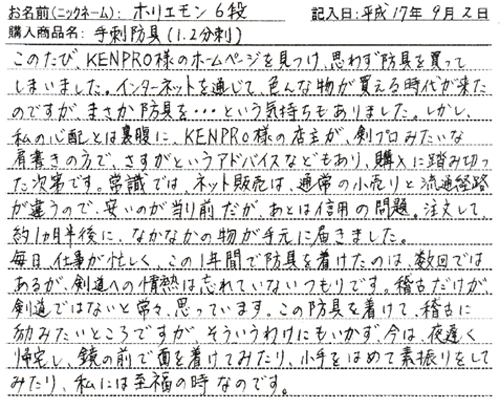 お名前(ニックネーム): ホリエモン6段 記入日:平成17年9月2日
購入商品名: 手刺防具(1.2分刺)
このたび、KENPRO様のホームページを見つけ、思わず防具を買って
しまいました。インターネットを通じて、色んな物が買える時代が来た
のですが、まさか防具を・・・という気持ちもありました。しかし、
私の心配とは裏腹に、KENPRO様の店主が、剣プロみたいな
肩書きの方で、さすがというアドバイスなどもあり、購入に踏み切っ
た次第です。常識では、ネット販売は、通常の小売りと流通経路
が違うので、安いのが当り前だが、あとは信用の問題。注文して、
約1ヵ月半後に、なかなかの物が手元に届きました。
毎日、仕事が忙しく、この1年間で防具を着けたのは、数回では
あるが、剣道への情熱は忘れていないつもりです。稽古だけが、
剣道ではないと常々、思っています。この防具を着けて、稽古に
励みたいところですが、そういうわけにもいかず、今は、夜遅く
帰宅し、鏡の前で面を着けてみたり、小手をはめて素振りをして
みたり、私には至福の時なのです。